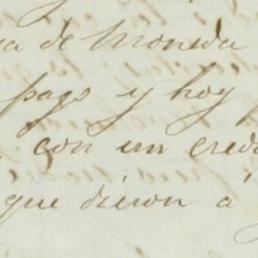 de Moneda
pago y hoy
con un cred
que dieron á